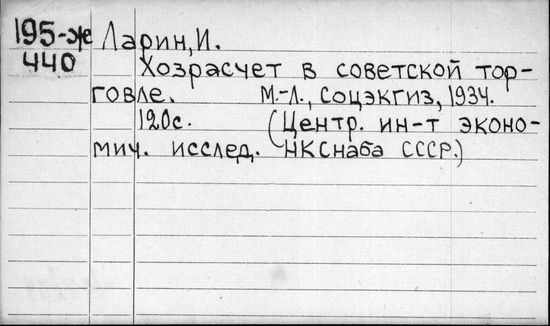 195-же Ларин, И.
440
Хозрасчет в советской тор-
говле. М.-Л., Соцэкгиз, 1934.
120с. (Центр. ин-т эконо-
мич. исслед. НКСнаба СССР.)